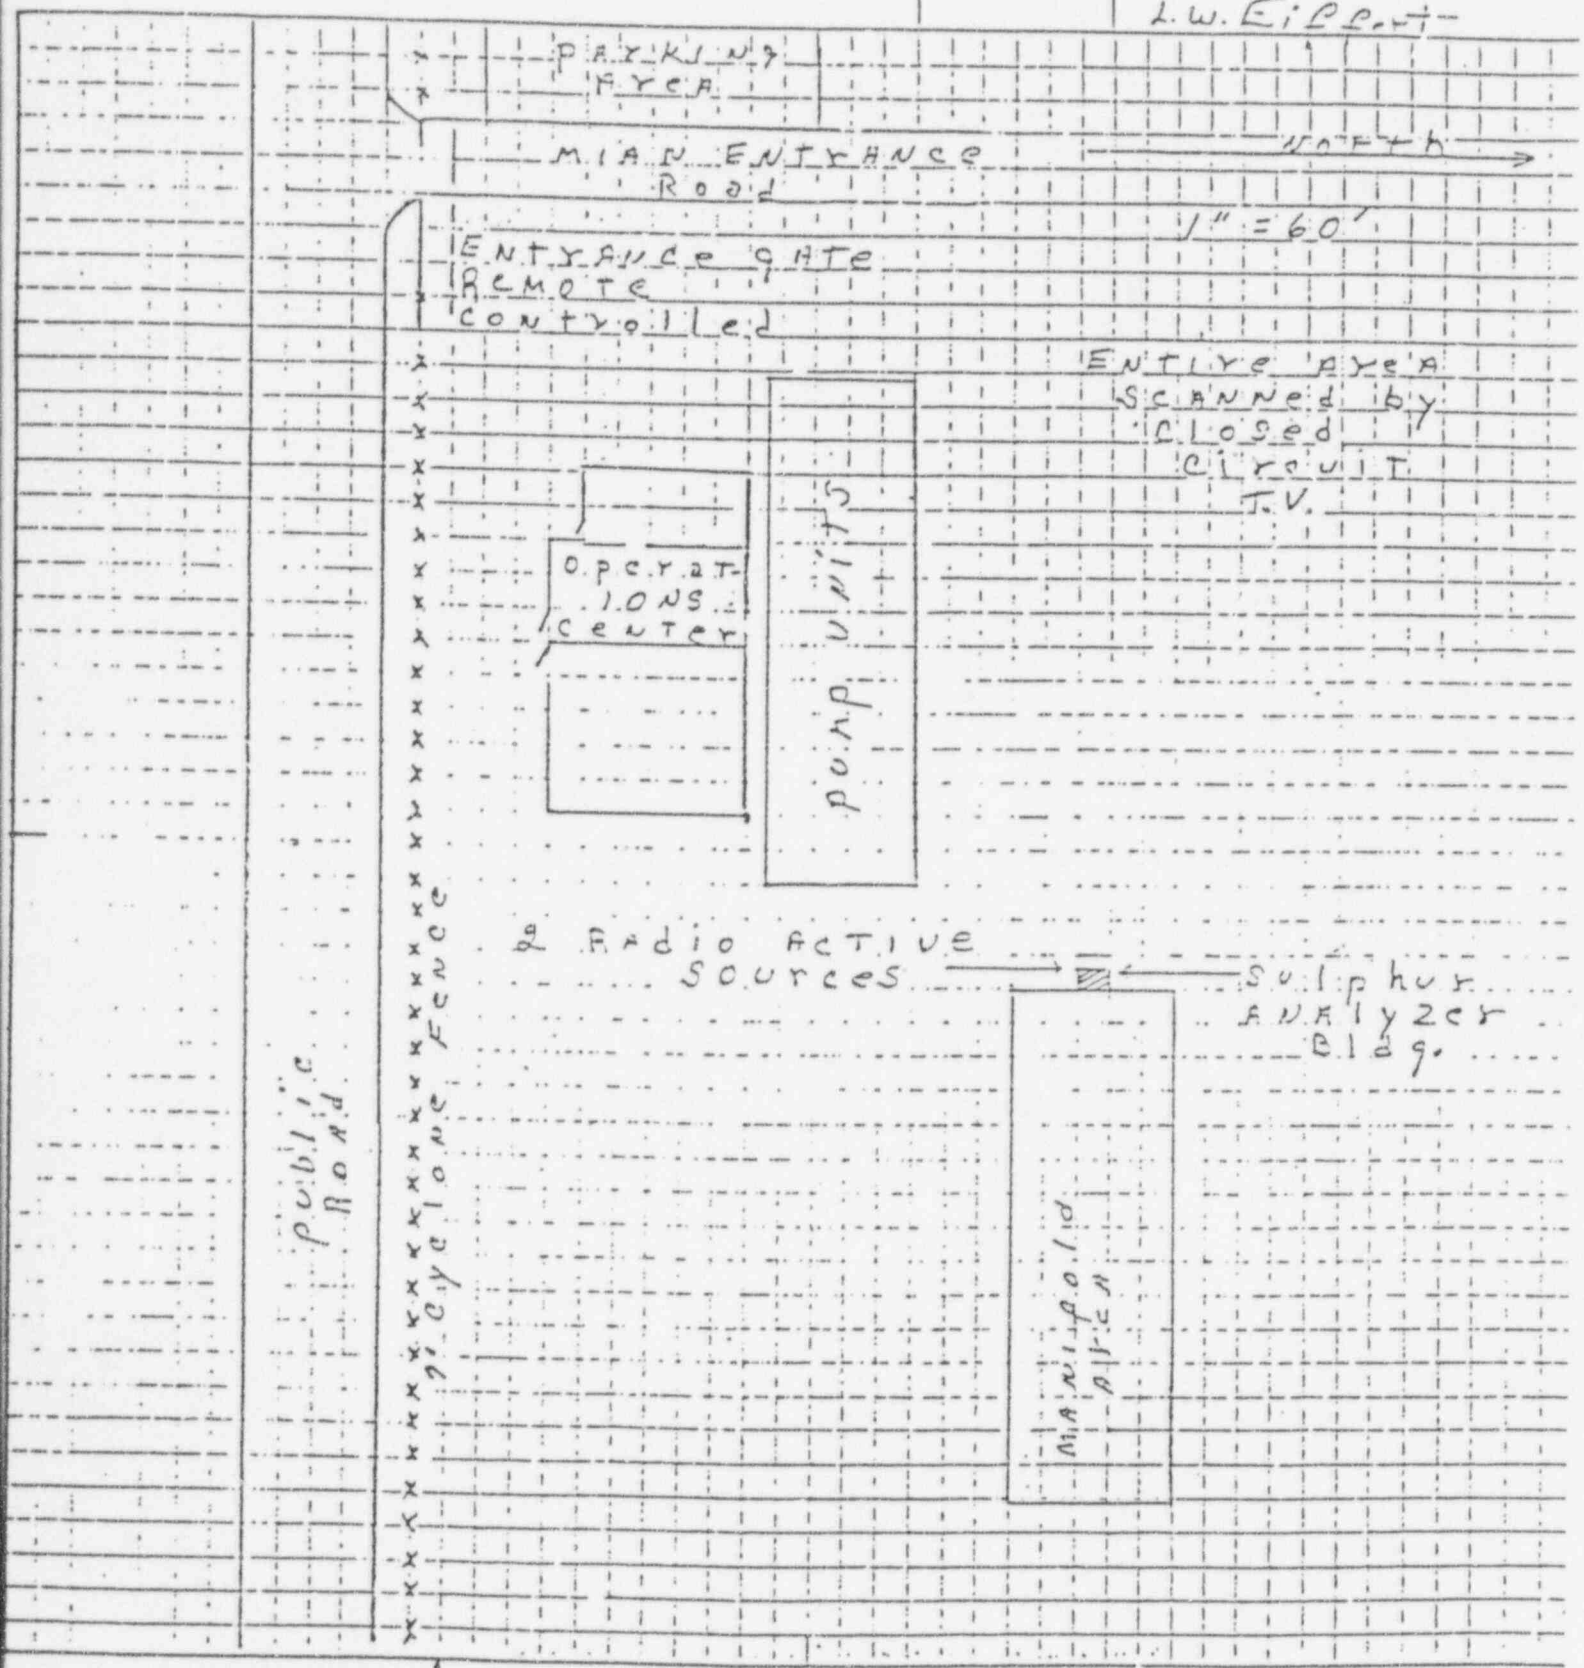 L.W. Eiffert
Parking
Area
MIAN ENTRANCE
Road
North
1" = 60'
ENTRANCE gATe
ReMOTe
CONTrolled
ENTIre AreA
ScANNed by
Closed
CIrcuIT
T.V.
OperaT-
IONS
CeNTer
pump UNiTS
2 RAdio AcTIve
SOUrces
Sulphur
ANAlyzer
Bldg.
7' CyclONe FeNce
publIc
RoAd
MANIfOld
AreA